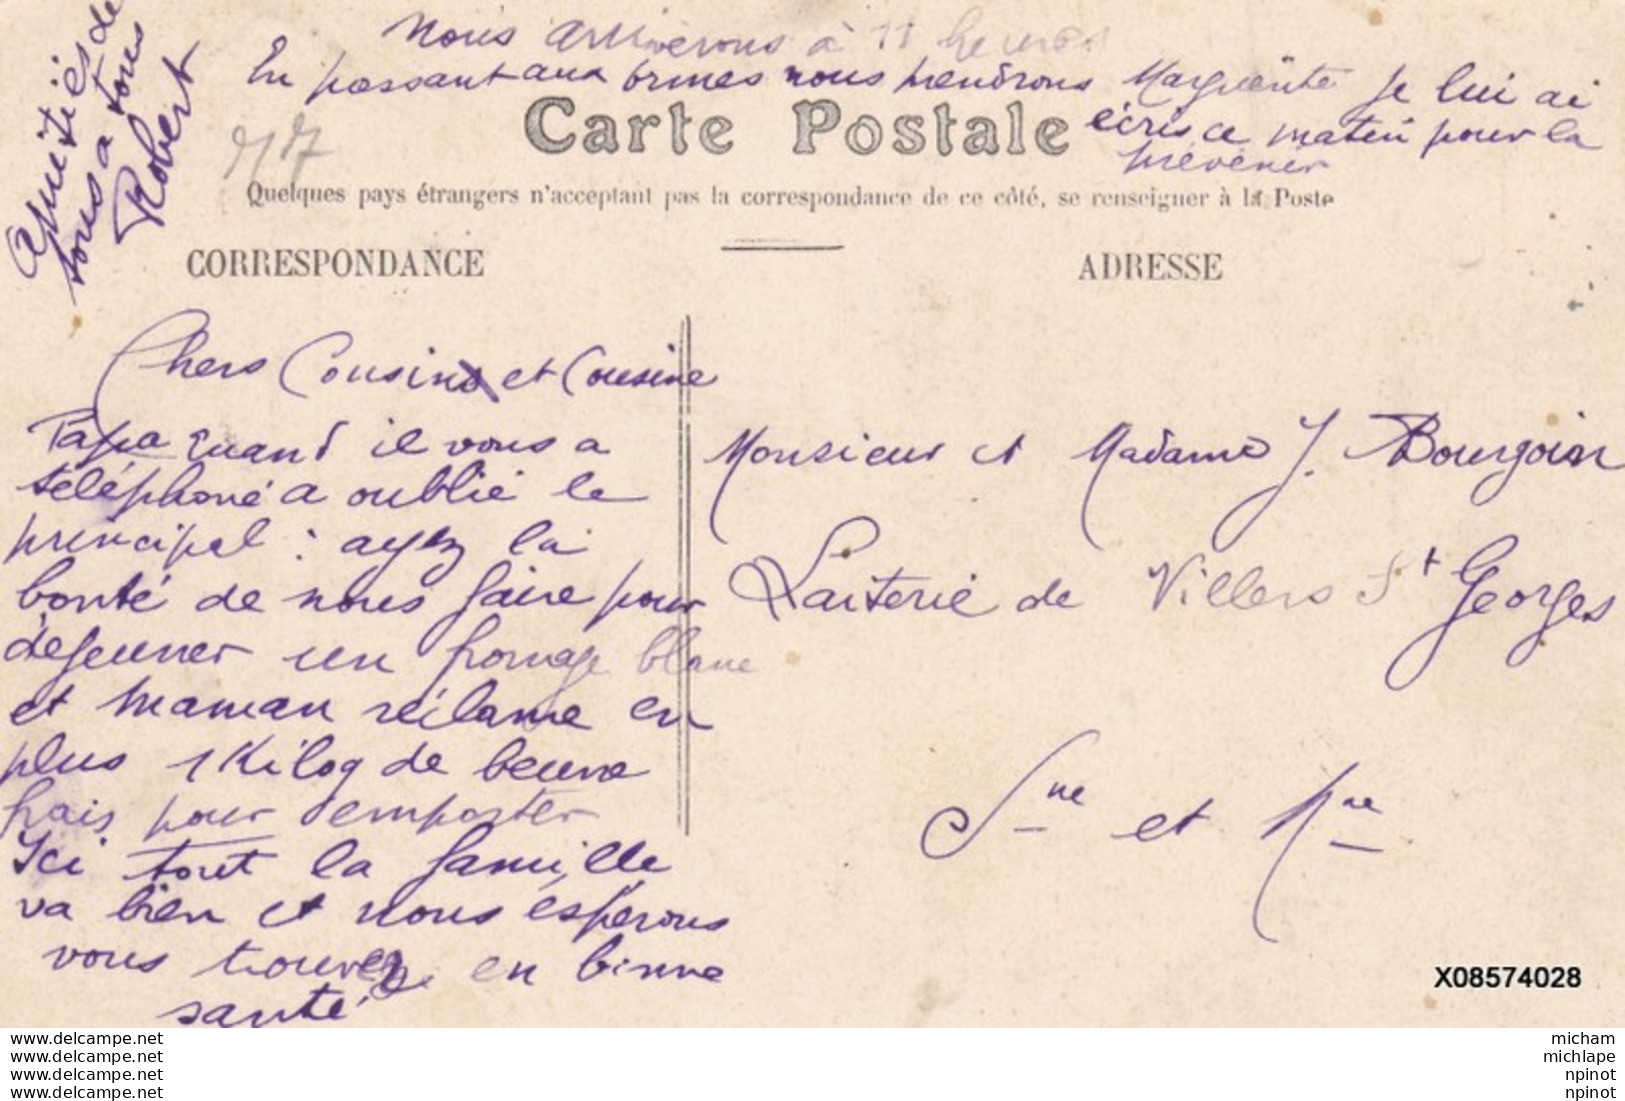 Nous arriverons à 11 heures
En passant aux ormes nous prendrons Marguerite je lui ai
écris ce matin pour la
prévener
Amitiés de
tous a tous
Robert
Carte Postale
Quelques pays étrangers n'acceptant pas la correspondance de ce côté, se renseigner à la Poste
CORRESPONDANCE
Chers Cousins et Cousine
Papa quand il vous a
téléphoné a oublié le
principal : ayez la
bonté de nous faire pour
dejeuner un fromage blanc
et maman réclame en
plus 1 Kilog de beurre
frais pour remporter
Ici tout la famille
va bien et nous espérons
vous trouver en bonne
santé
ADRESSE
Monsieur et Madame J. Bourgoin
Laiterie de Villers St Georges
Sne et Mne
X08574028
www.delcampe.net
www.delcampe.net
www.delcampe.net
www.delcampe.net
micham
michlape
npinot
npinot